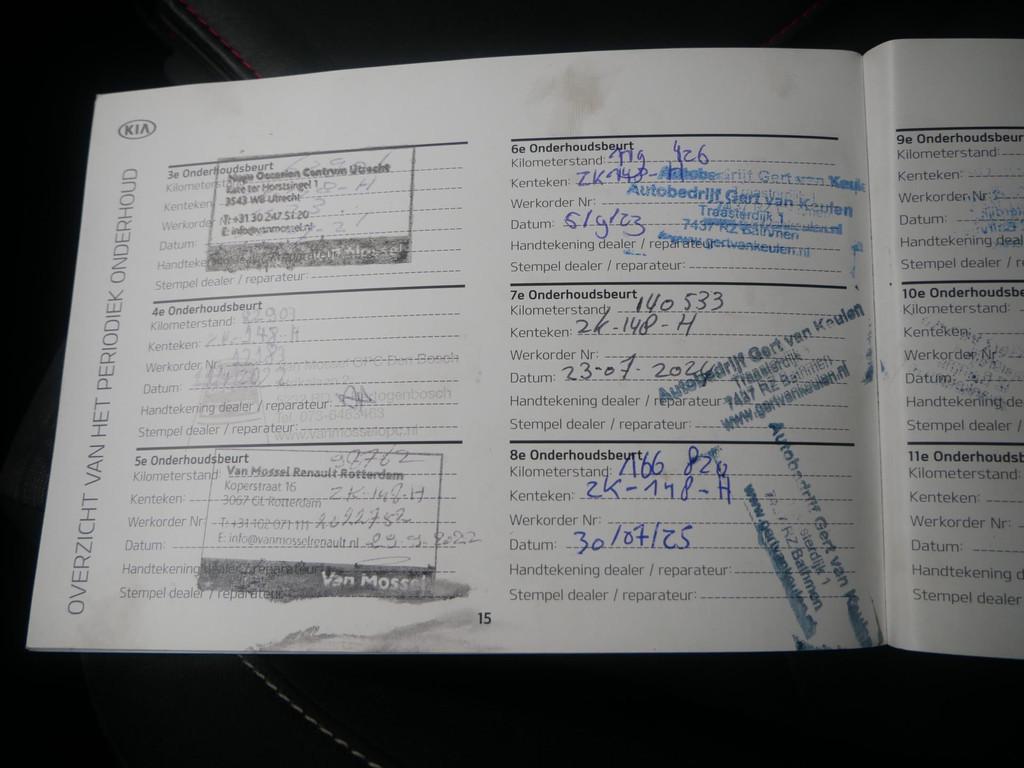 KIA
OVERZICHT VAN HET PERIODIEK ONDERHOUD
3e Onderhoudsbeurt
Kilometerstand:
Kenteken:
Werkorder
Datum:
Stempel dealer / reparateur:
Occasion Centrum Utrecht
Horstsingel 1
3543 WB Utrecht
T: +31 30 247 51 20
E: info@vanmossel.nl
4e Onderhoudsbeurt
Kilometerstand:
Kenteken: ZK-148-H
Werkorder Nr:
Datum:
Handtekening dealer / reparateur:
Stempel dealer / reparateur:
5e Onderhoudsbeurt
Kilometerstand:
Kenteken: ZK-148-H
Werkorder Nr:
Datum: 29.9.2022
Handtekening dealer / reparateur:
Stempel dealer / reparateur:
Van Mossel Renault Rotterdam
Koperstraat 16
3067 GL Rotterdam
E: info@vanmosselrenault.nl
Van Mossel
15
6e Onderhoudsbeurt
Kilometerstand: 119 426
Kenteken: ZK-148-H
Werkorder Nr:
Datum: 5/9/23
Handtekening dealer / reparateur:
Stempel dealer / reparateur:
Autobedrijf Gert van Keulen
Traasterdijk 1
7437 RZ Bathmen
www.gertvankeulen.nl
7e Onderhoudsbeurt
Kilometerstand: 140 533
Kenteken: ZK-148-H
Werkorder Nr:
Datum: 23-07-2024
Handtekening dealer / reparateur:
Stempel dealer / reparateur:
Autobedrijf Gert van Keulen
Traasterdijk 1
7437 RZ Bathmen
www.gertvankeulen.nl
8e Onderhoudsbeurt
Kilometerstand: 166 826
Kenteken: ZK-148-H
Werkorder Nr:
Datum: 30/07/25
Handtekening dealer / reparateur:
Stempel dealer / reparateur:
Autobedrijf Gert van Keulen
7437 RZ Bathmen
www.gertvankeulen.nl
9e Onderhoudsbeur
Kilometerstand:
Kenteken:
Werkorder Nr:
Datum:
Handtekening deal
Stempel dealer / r
10e Onderhoudsb
Kilometerstand:
Kenteken:
Werkorder Nr:
Datum:
Handtekening de
Stempel dealer /
11e Onderhoudsb
Kilometerstand:
Kenteken:
Werkorder Nr:
Datum:
Handtekening d
Stempel dealer